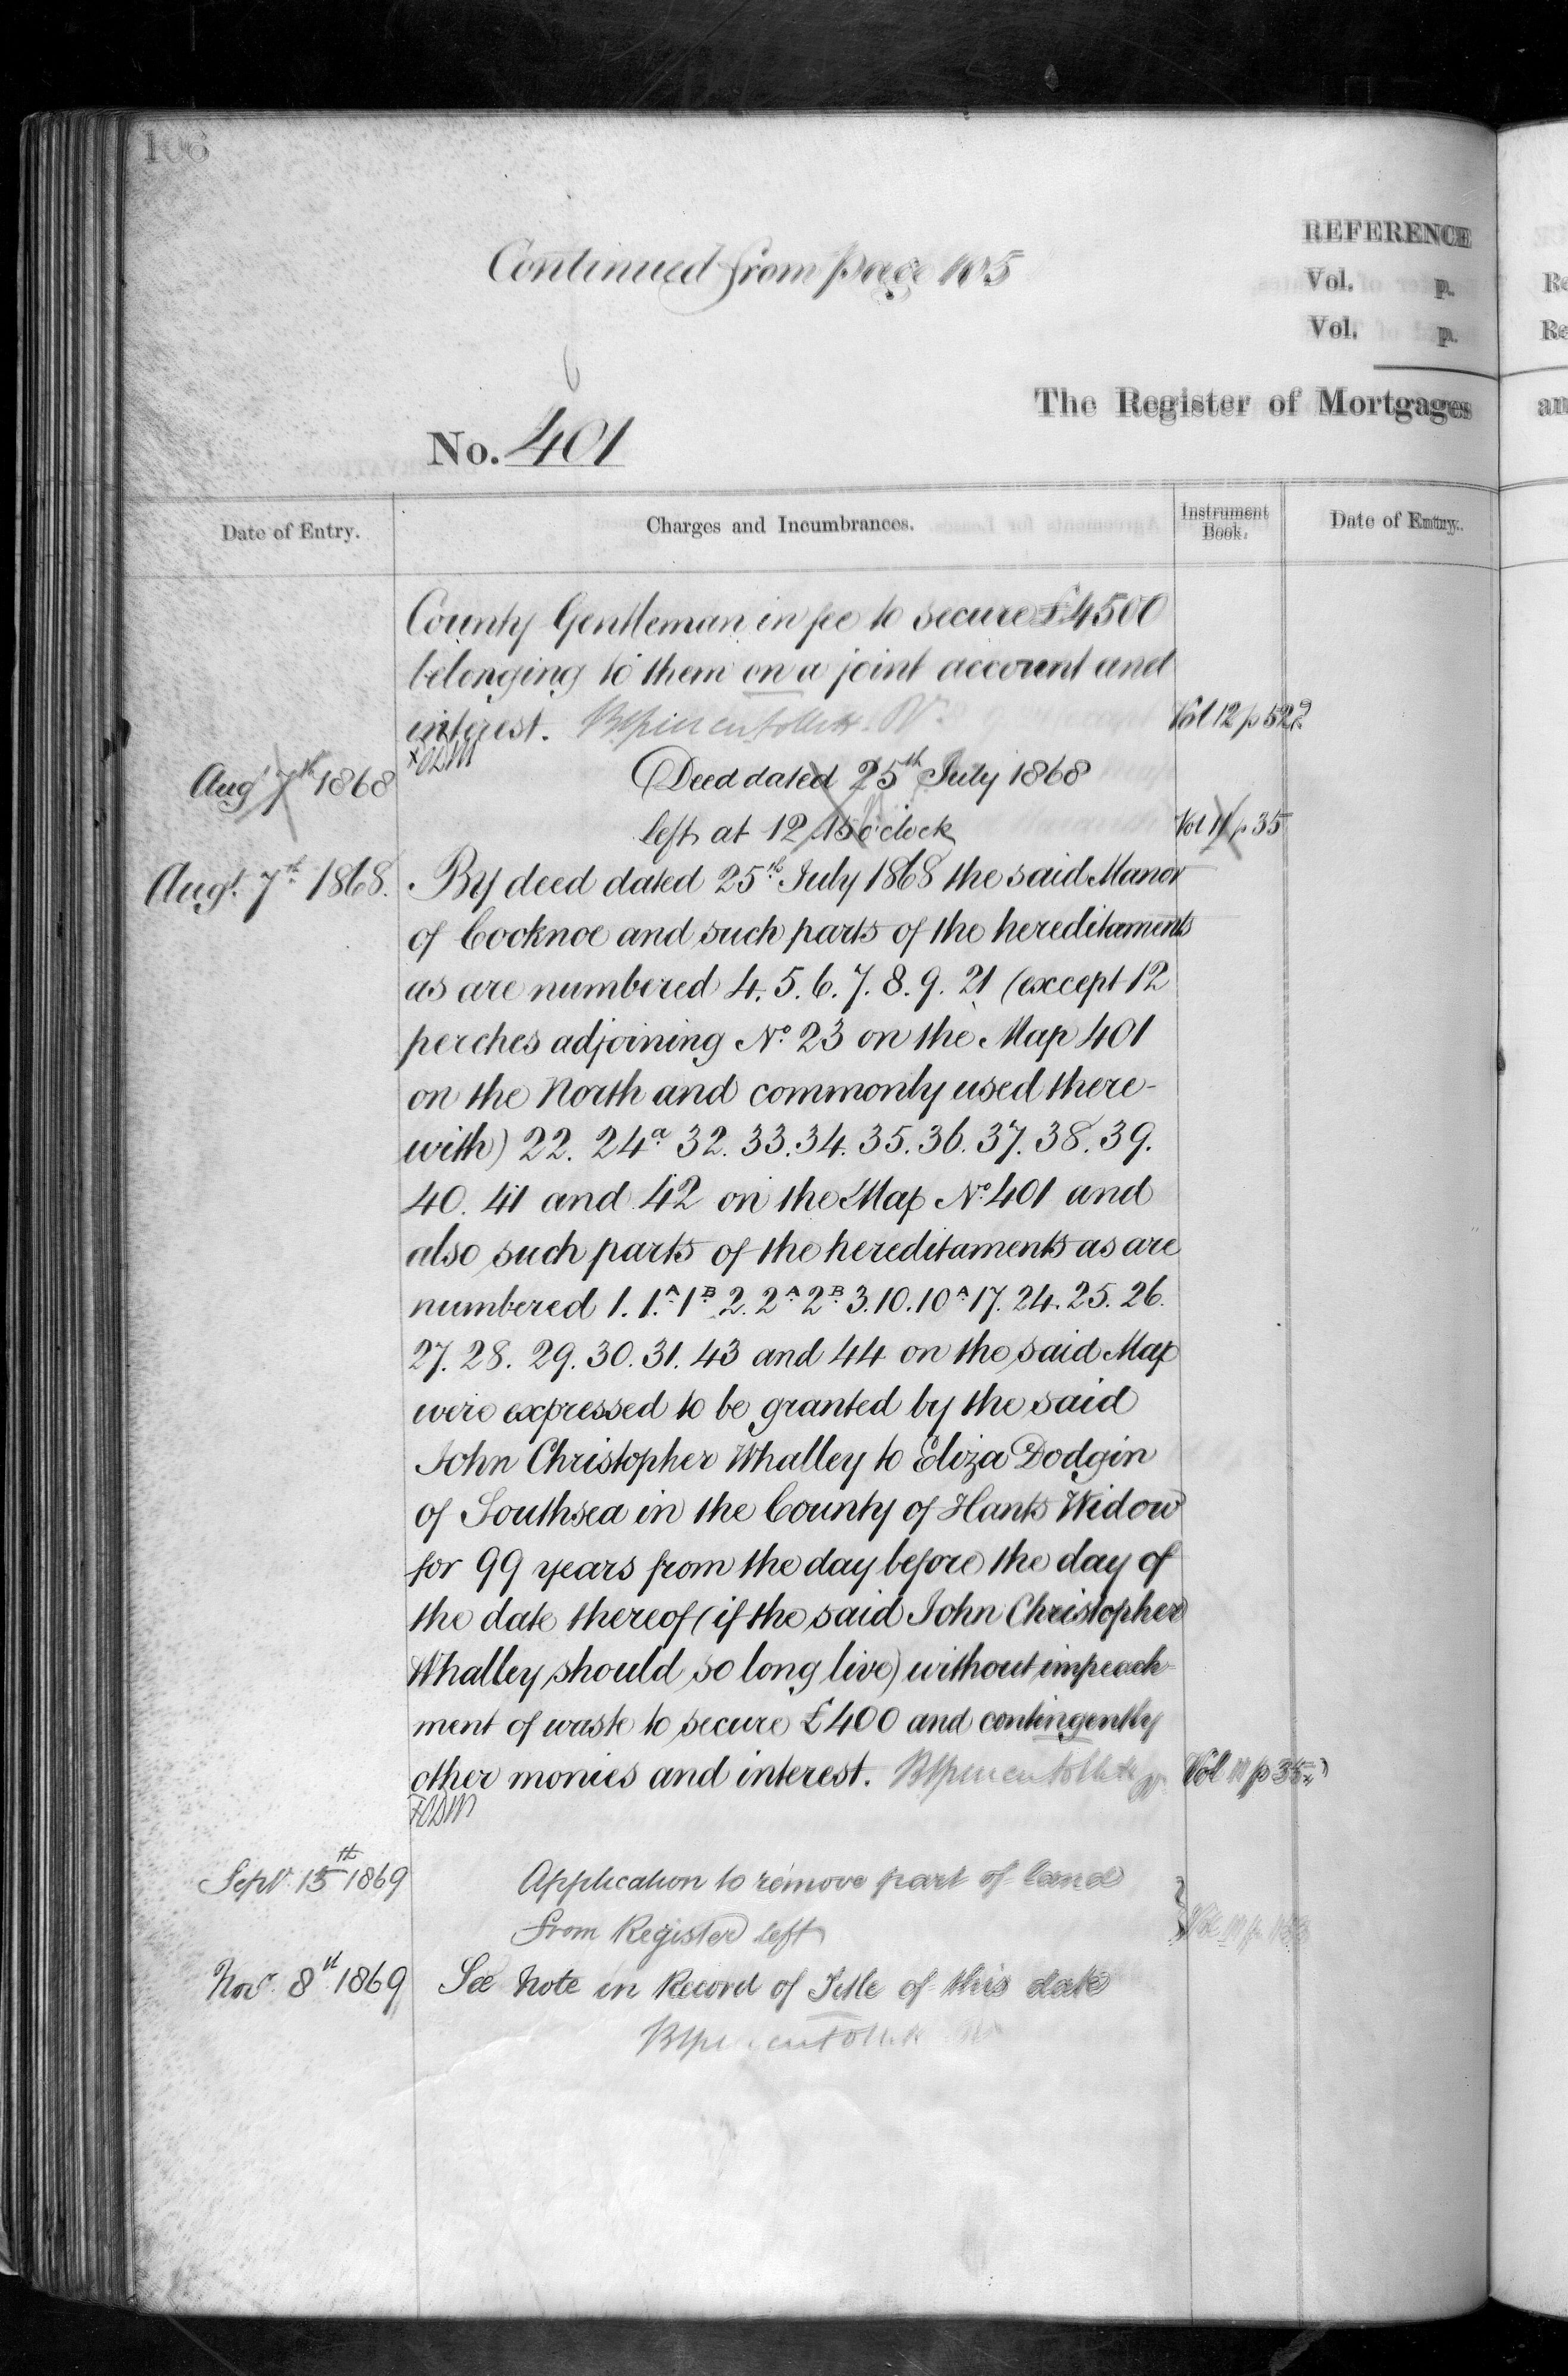 106
Continued from page 105
REFERENCE
Vol. p.
Vol. p.
The Register of Mortgages
No. 401
Date of Entry.
Charges and Incumbrances.
Instrument Book.
Date of Entry.
County Gentleman in fee to secure £4500
belonging to them on a joint account and
interest.
Vol 12 p 529
Augt 7th 1868
Deed dated 25th July 1868
left at 12.15 o'clock
Vol 11 p 35
Augt. 7th 1868.
By deed dated 25th July 1868 the said Manor
of Cocknoe and such parts of the hereditaments
as are numbered 4. 5. 6. 7. 8. 9. 21 (except 12
perches adjoining No. 23 on the Map 401
on the North and commonly used there-
with) 22. 24a 32. 33. 34. 35. 36. 37. 38. 39.
40. 41 and 42 on the Map No. 401 and
also such parts of the hereditaments as are
numbered 1. 1.A 1B 2. 2A 2B 3. 10. 10A 17. 24. 25. 26.
27. 28. 29. 30. 31. 43 and 44 on the said Map
were expressed to be granted by the said
John Christopher Whalley to Eliza Dodgin
of Southsea in the County of Hants Widow
for 99 years from the day before the day of
the date thereof (if the said John Christopher
Whalley should so long live) without impeach-
ment of waste to secure £400 and contingently
other monies and interest.
Vol 11 p 35
Sept. 15th 1869
Application to remove part of land
from Register left
Novr. 8th 1869
See Note in Record of Title of this date